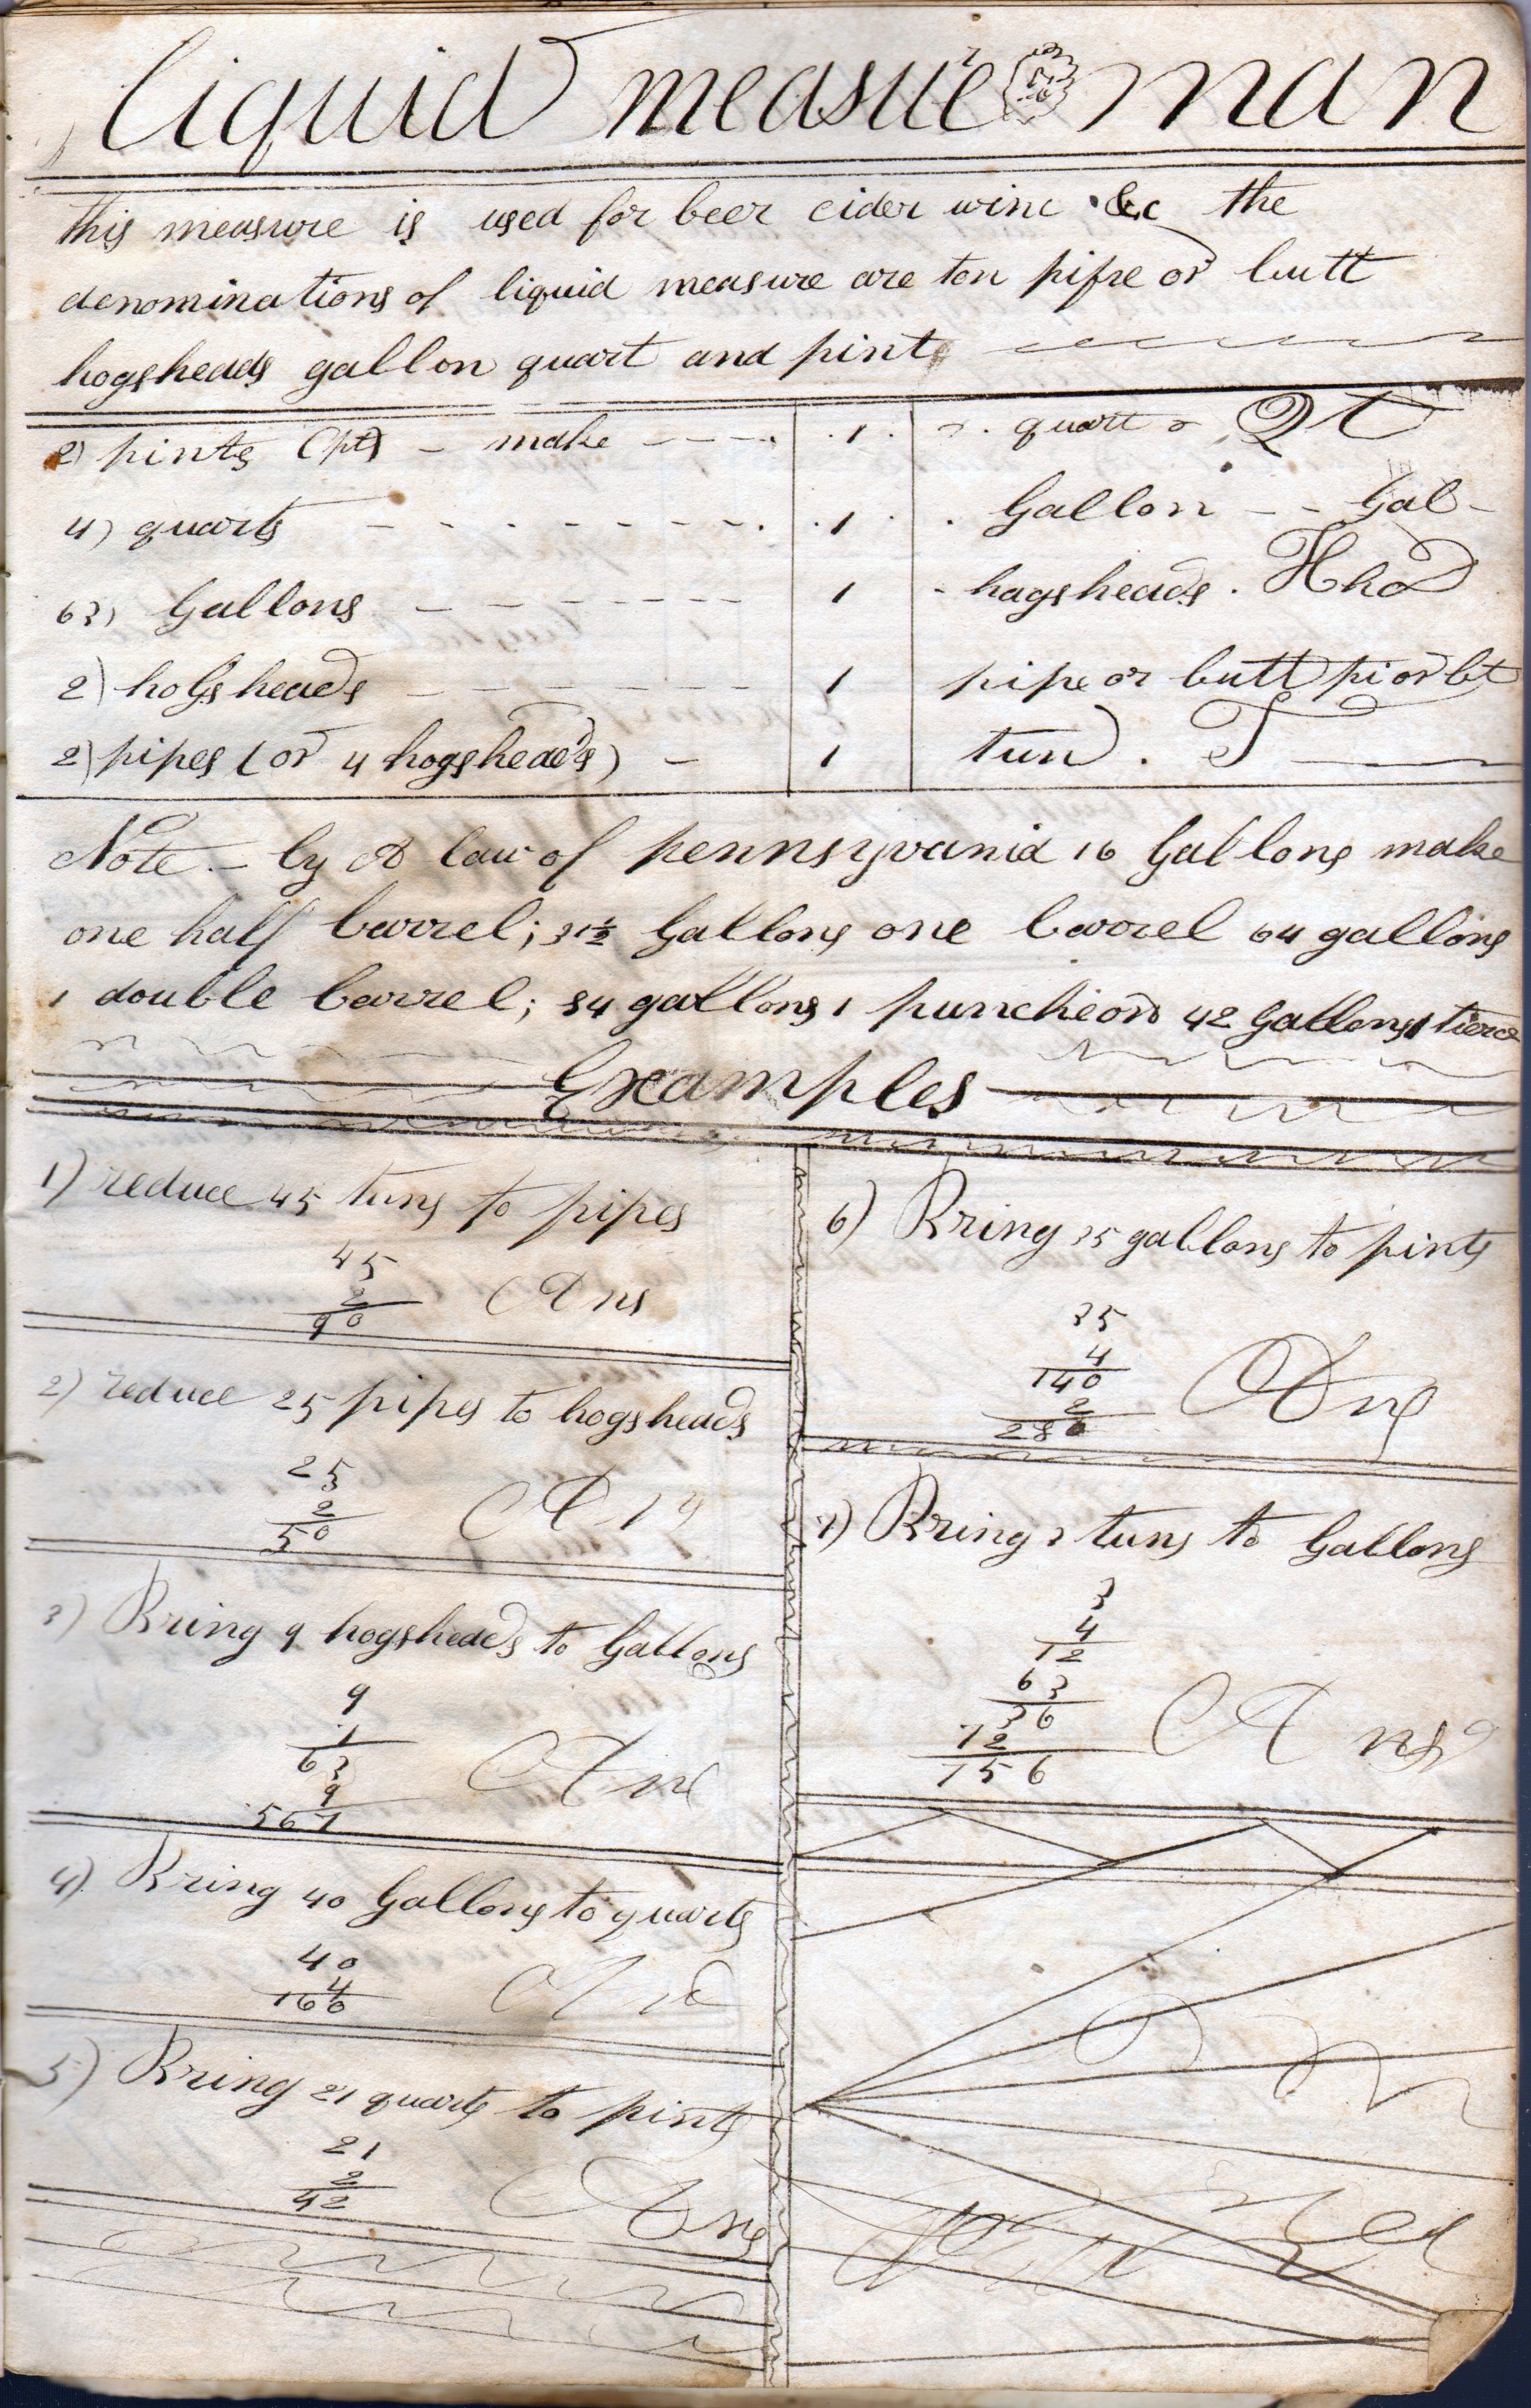 liquid measure man
this measure is used for beer cider wine &c the
denominations of liquid measure are ton pipe or butt
hogsheads gallon quart and pints
2) pints (pts) - make - - - - 1 quart Qt
4) quarts - - - - - - - - 1 Gallon - - Gal -
63) Gallons - - - - - - - 1 - hagsheads . Hhd
2) hogsheads - - - - - - - 1 pipe or butt pi or bt
2) pipes (or 4 hogsheads) - 1 tun . T
Note - by A law of pennsyvania 16 Gallons make
one half barrel; 31½ Gallons one barrel 64 gallons
1 double barrel; 84 gallons 1 puncheon 42 Gallons 1 tierce
Examples
1) reduce 45 tuns to pipes
45
2
90 Ans
2) reduce 25 pipes to hogsheads
25
2
50 Ans
3) Bring 9 hogsheads to Gallons
9
1
63
9
567 Ans
4) Bring 40 Gallons to quarts
40
4
160 Ans
5) Bring 21 quarts to pints
21
2
42 Ans
6) Bring 35 gallons to pints
35
4
140
2
280 Ans
7) Bring 3 tuns to Gallons
3
4
12
63
36
72
756 Ans